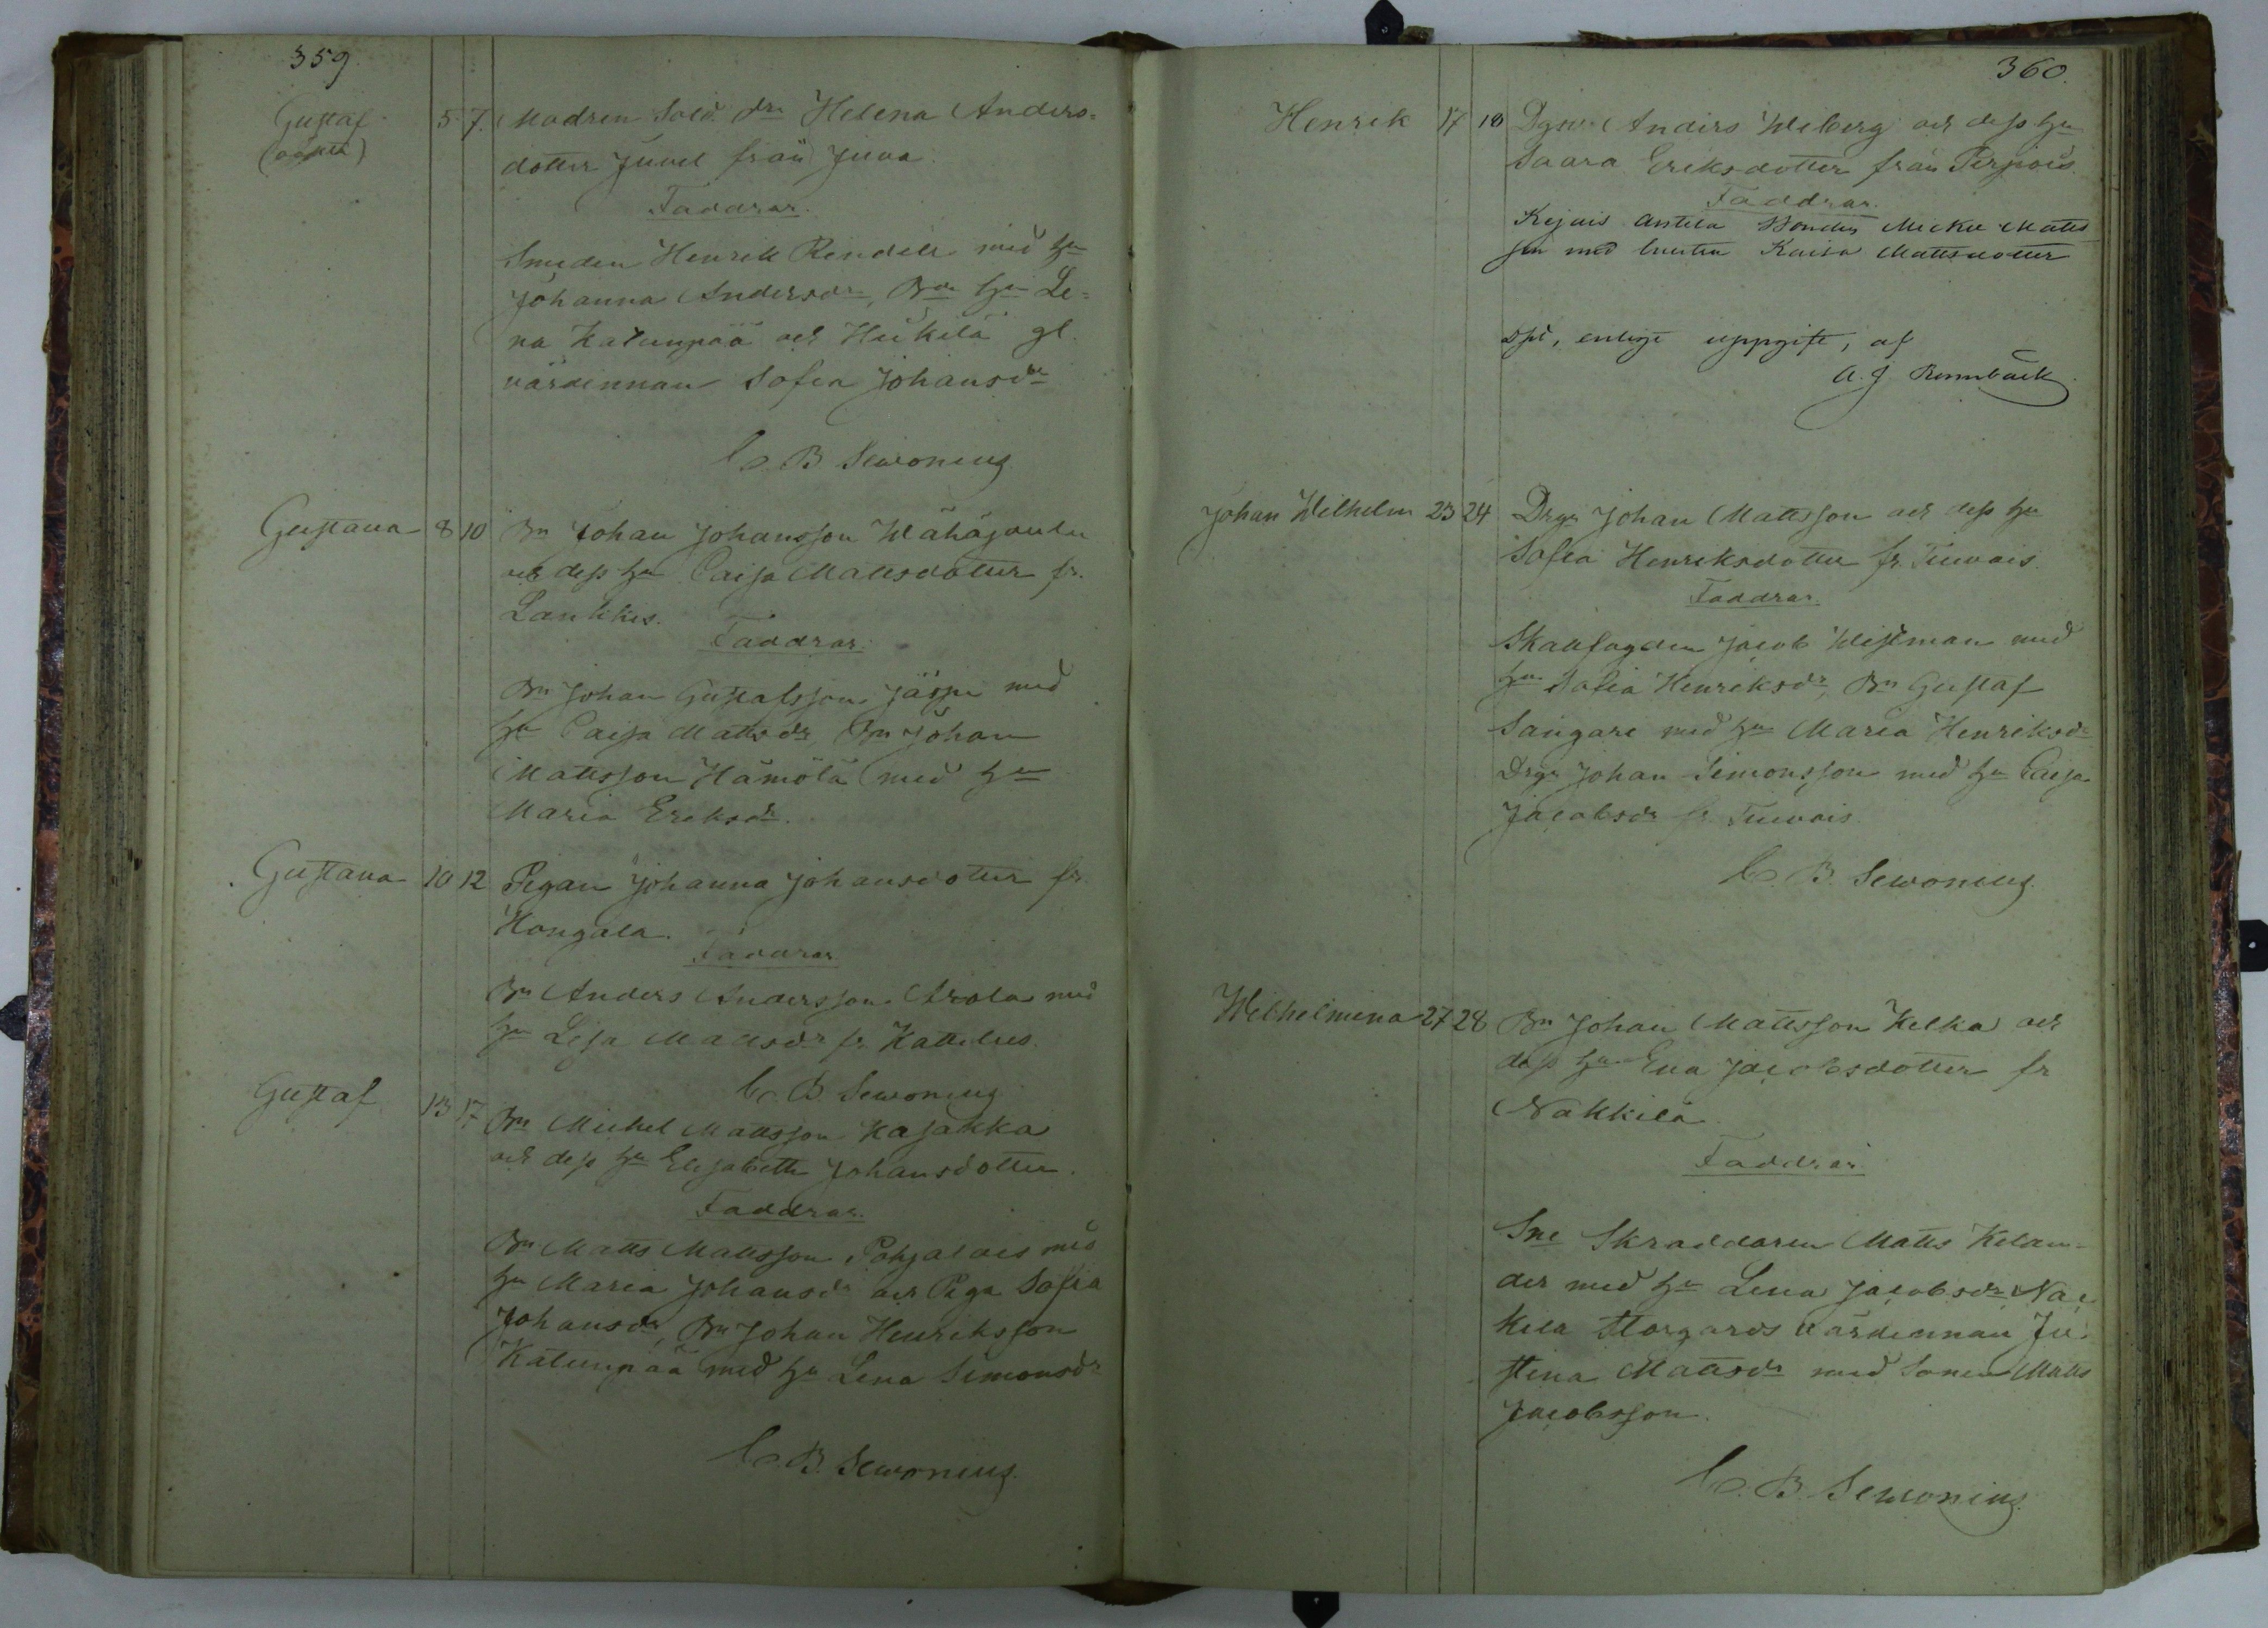 359.
Gustaf 5 7. Modren Sold. dr Helena Anders-
(oäkta) dotter Juvel från Juva.
Faddrar.
Smeden Henrik Rendell med hu
Johanna Andersdr, Bn hu Le-
na Katunpää och Heikilä gl.
värdinnan Sofia Johansdr
C. B. Sewonius
Gustava 8 10 Bn Johan Johansson Wähäjaula
och dess hu Caisa Mattsdotter fr.
Lankkis.
Faddrar.
Bn Johan Gustafsson Jäspi med
hu Caisa Mattsdr, Bn Johan
Mattsson Hämölä med hu
Maria Eriksdr.
Gustava 10 12 Pigan Johanna Johansdotter fr.
Hongala.
Faddrar
Bn Anders Andersson Arola med
hu Lisa Mattsdr fr. Kattelus.
C. B. Sewonius
Gustaf 13 17 Bn Michel Mattsson Kasakka
och dess hu Elisabeth Johansdotter.
Faddrar.
Bn Matts Mattsson Pohjalais med
hu Maria Johansdr och Piga Sofia
Johansdr, Bn Johan Henriksson
Katunpää med hu Lena Simonsdr
C. B. Sewonius.
360.
Henrik 17 18 Anders Wiberg och dess hu
Saara Eriksdotter från Pirjois.
Faddrar.
Kejais Antila Bonden Micke Matts
son med hustru Kaisa Mattsdotter
Dpt, enligt uppgift, af
A. J. Rennbäck
Johan Wilhelm 23 24 Drgn Johan Mattsson och dess hu
Sofia Henriksdotter fr. Tuwais.
Faddrar.
Skallfogden Jacob Wistman med
hu Sofia Henriksdr, Bn Gustaf
Saugare med hu Maria Henriksdr
Drgn Johan Simonsson med hu Caisa
Jacobsdr fr. Tuwais.
C. B. Sewonius.
Wilhelmina 27 28 Bn Johan Mattsson Kelka och
dess hu Eva Jacobsdotter fr
Nakkila.
Faddrar.
Sne Skraddaren Matts Kelan-
der med hu Lena Jacobsdr, Na-
kila Storgårds värdinnan Ju-
stina Mattsdr med Sonen Matts
Jacobsson.
C. B. Sewonius.